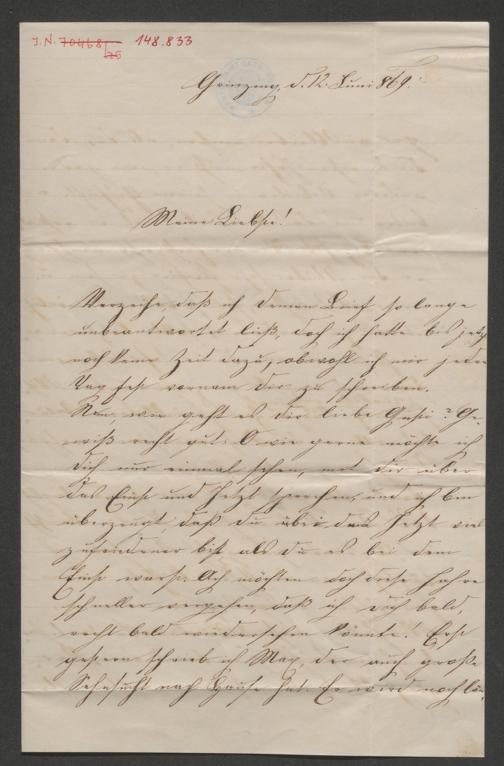 J.N. 70468/26 148.833
Grinzing, d. 12. Juni 869.
Meine Liebste!
Verzeihe, daß ich deinen Brief so lange
unbeantwortet ließ, doch ich hatte bis jetzt
noch keine Zeit dazu, obwohl ich mir jeden
Tag fest vornam dir zu schreiben.
Nun, wie geht es dir liebe Gusti? Ge-
wiß recht gut. O wie gerne möchte ich
dich nur einmal sehen, mit dir über
das Einst und Jetzt sprechen, und ich bin
überzeugt daß du über das Jetzt viel
zufriedener bist als du es bei dem
Einst warst. Ach möchten doch diese Jahre
schneller vergehen, daß ich dich bald,
recht bald wiedersehen könnte! Erst
gestern schrieb ich Max, der auch große
Sehnsucht nach Hause hat. Er wird noch